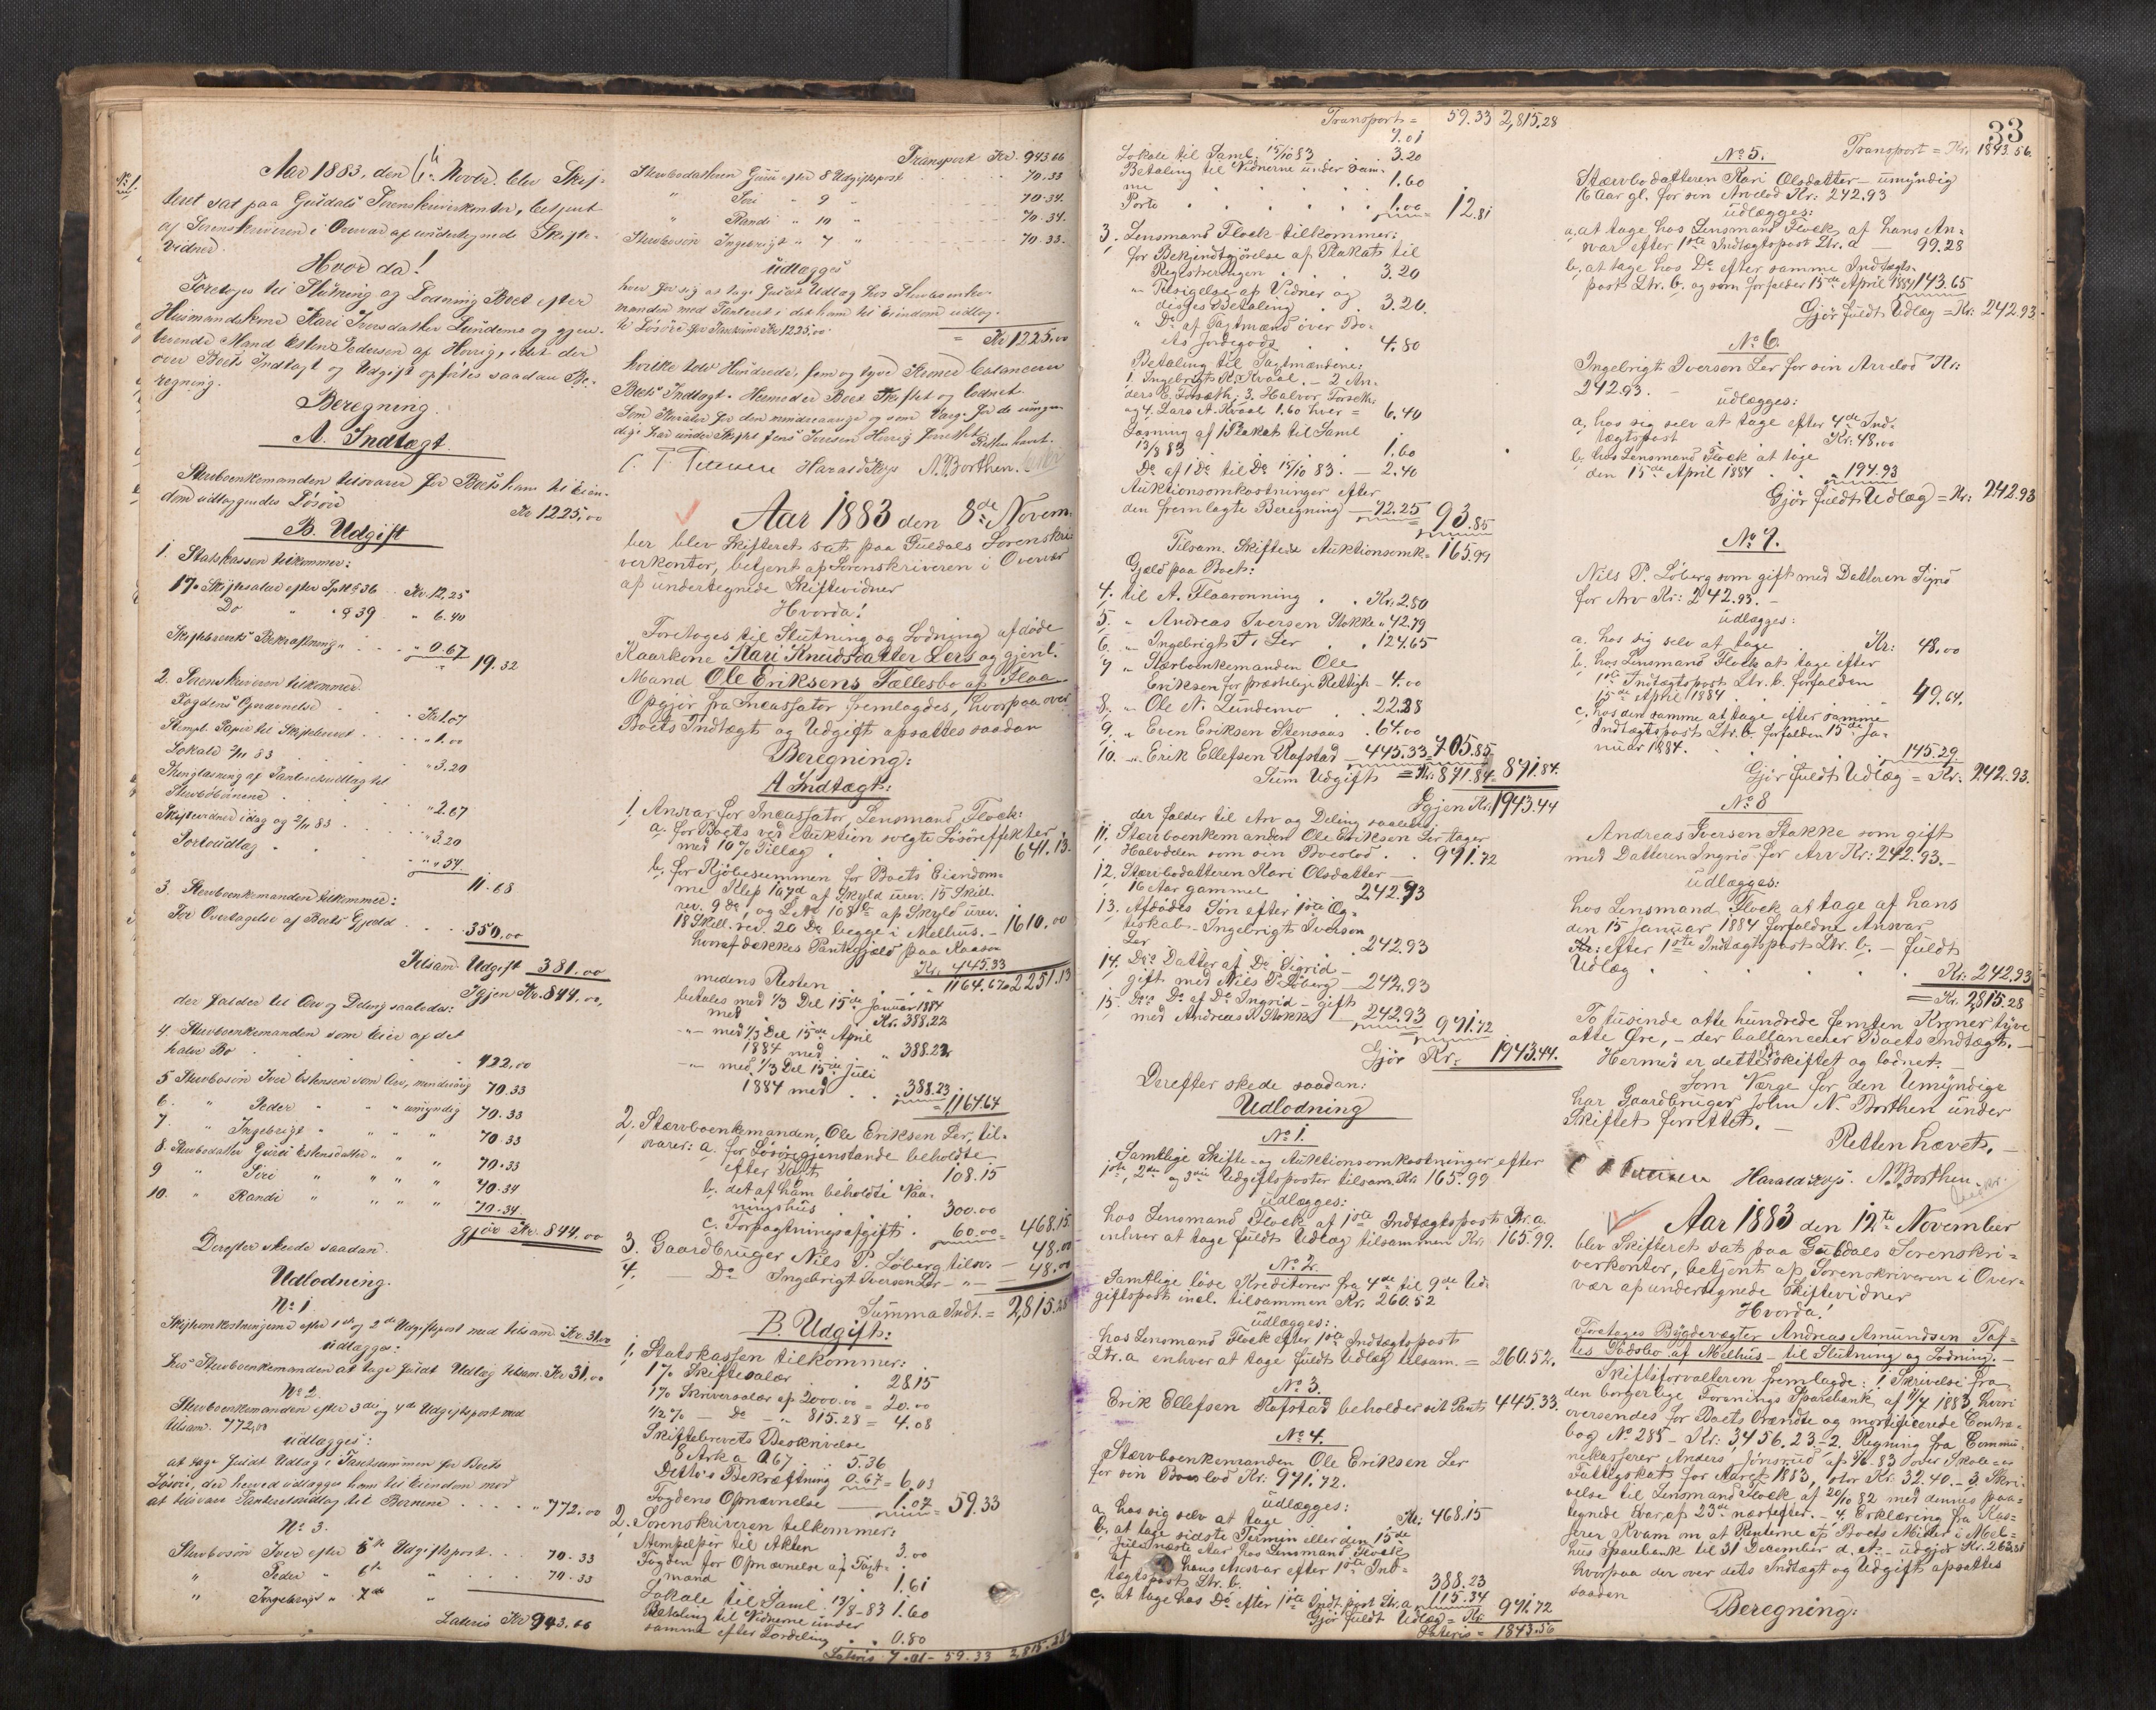 Aar 1883, den 6te Novbr. blev Skif-
teret sat paa Guldals Sorenskriverkontor, betjent
af Sorenskriveren i Overvær af undertegnede Skifte-
vidner.
Hvorda!
Foretoges til Slutning og Lodning Boet efter
Huusmandskone Kari Iversdatter Lundemo og gjen-
levende Mand Esten Pedersen af Horrig, idet der
over Boets Indtægt og Udgift opførtes saadan Be-
regning.
Beregning.
A. Indtægt.
Stervboenkemanden tilsvarer for Boets ham til Eien-
dom udlæggendes Løsøre Kr 1225,00
B. Udgift
1. Statskassen tilkommer:
1% Skiftesalær efter Sptl § 36 Kr. 12.25
Do " " § 39 " 6.40
Skiftebrevets Bekræftning " 0.67
" 19.32
2. Sorenskriveren tilkommer
Fogdens Opnævnelse Kr 1.07
Stempl. Papir til Skiftebrevet " 1.00
Lokale 2/11 83 " 3.20
Thinglæsning af Panteretsudlæg til
Stervbobørnene " 2.67
Skiftevidner idag og 2/11 83 " 3.20
Portoudlæg " " 54
11.68
3. Stervboenkemanden tilkommer:
For Overtagelse af Boets Gjæld 350,00
Tilsam. Udgift 381.00
Igjen Kr. 844.00,
der falder til Arv og Deling saaledes:
4. Stervboenkemanden som Eier af det
halve Bo 422,00
5 Stervbosøn Iver Estensen som Arv, mindreaarig 70.33
6. " Peder " " " umyndig 70.33
7. " Ingebrigt " " " " 70.33
8. Stervbodatter Guru Estensdatter " " " 70.33
9 " Siri " " " " 70.34
10. " Randi " " " " 70.34
gjør Kr. 844.00
Derefter skede saadan.
Udlodning.
No 1
Skifteomkostningerne efter 1ste og 2den Udgiftspost med tilsam. Kr. 31.00
udlægges:
hos Stervboenkemanden at tage fuldt Udlæg tilsam. Kr 31,00
No 2.
Stervboenkemanden efter 3die og 4de Udgiftspost med
tilsam. 772,00
udlægges:
at tage fuldt Udlæg i Taxtsummen for Boets
Løsøre, der herved udlægges ham til Eiendom mod
at tilsvare Panteretsudlæg til Børnene " 772.00
No 3.
Stervbosøn Iver efter 5te Udgiftspost 70.33
" Peder " 6te " 70.33
" Ingebrigt " 7de "
Lateris Kr 943.66
Transport Kr. 943.66
Stervbodatteren Guru efter 8 Udgiftspost 70.33
" Siri " 9 " 70.34.
" Randi " 10 " 70.34.
Stervbosøn Ingebrigt " 7 " 70.33.
udlægges
hver for sig at tage fuldt Udlæg hos Stervboenke-
manden med Panteret i det ham til Eiendom udlag-
te Løsøre for Taxtsum Kr 1225,00
= Kr 1225.00
hvilke tolv Hundrede, fem og tyve Kroner balancerer
Boets Indtægt. Hermed er Boet skiftet og lodnet.
Som Kurator for den mindreaarige og som Værge for de umyn-
dige har under Skiftet Jens Iversen Horrig forrettet.
Retten hævt.
Harald Krys N. Borthen.
Aar 1883 den 8de Novem-
ber blev Skifteret sat paa Guldals Sorenskri-
verkontor, betjent af Sorenskriveren i Overvær
af undertegnede Skiftevidner
Hvorda!
Foretoges til Slutning og Lodning afdøde
Kaarkone Kari Knudsdatter Lers og gjenl.
Mand Ole Eriksens Fællesbo af Flaa.
Opgjør fra Incassator fremlagdes, hvorpaa over
Boets Indtægt og Udgift opsattes saadan
Beregning:
A Indtægt:
1, Ansvar for Incassator, Lensmand Flock:
a. for Boets ved Auktion solgte Løsøreffekter
med 10% Tillæg 641.13.
b. for Kjøbesummen for Boets Eiendom-
me Klep 107d af Skyld urev. 15 Skill.
rev. 9 de, og L.No 108b af Skyld urev.
18 Skill. rev. 20 Do begge i Melhus. - 1610.00
hvoraf dækkes Pantegjæld paa Kaasen
Kr. 445.33
medens Resten 1164.67 2251.13
betales med 1/3 Del 15de Januar 1884
med Kr. 388.22
-"- med 1/3 Del 15de April
1884 med " 388.22
-"- med 1/3 Del 15de Juli
1884 med 388.23
= 1164.67
2. Stærvboenkemanden, Ole Eriksen Ler, til-
svarer: a. for Løsøregjenstande beholdte
efter Taxt 108.15
b. det af ham beholdte Vaa-
ningshus 300.00
c. Forpagtningsafgift 60.00 = 468.15
3. Gaardbruger Nils P. Løberg tilsv. - 48.00
4. - Do Ingebrigt Iversen Ler -"- 48.00
Summa Indt. = 2,815.28
B. Udgift:
1. Statskassen tilkommer:
1% Skiftesalær 28.15
1% Skriversalær af 2000.00 = 20.00
1/2% - Do - " 815.28 = 4.08
Skiftebrevets Beskrivelse
8 Ark a 0.67 5.36
Ditto's Bekræftning 0.67 = 6.03
Fogdens Opnævnelse - 1.07 = 59.33
2. Sorenskriveren tilkommer:
Stempelpir til Akten 3.00
Fogden for Opnævnelse af Taxt-
mænd 1.61
Lokale til Saml. 13/8-83 1.60
Betaling til Vidnerne under
samme efter Fordeling 0.80
Lateris 7.01 - 59.33 2,815.28
Transport = 59.33 2,815.28
7.01
Lokale til Saml. 15/10 83 3.20
Betaling til Vidnerne under sam-
me 1.60
Porto 1.00
= 12.81
3. Lensmand Flock tilkommer:
for Bekjendtgjørelse af Plakat til
Registreringen 3.20
" Tilsigelse af Vidner og
disses Betaling 3.20.
" Do af Taxtmænd over Bo-
ets Jordegods 4.80
Betaling til Taxtmændene:
1. Ingebrigt K. Kvaal. - 2 An-
ders E. Forseth; 3. Halvor Forseth;
og 4. Lars A. Kvaal 1.60 hver = 6.40
Læsning af 1 Plakat til Saml
13/8 83 1.60
Do af 1 Do til Do 15/10 83. - 2.40
Auktionsomkostninger efter
den fremlagte Beregning - 72.25 = 93.85
Tilsam. Skifte & Auktionsomk = 165.99
Gjæld paa Boet:
4. til A. Flaarønning Kr. 2.80
5. " Andreas Iversen Stokke " 42.79
6. " Ingebrigt I. Ler 124.65
7 " Stærboenkemanden Ole
Eriksen for præstelige Rettigh - 4.00
8. " Ole N. Lundemo 22.28
9. " Even Eriksen Stensaas 64.00
10. " Erik Ellefsen Rofstad - 445.33 = 705.85
Sum Udgift = Kr. 871.84 = 871.84.
Igjen Kr. 1943.44
der falder til Arv og Deling saaledes:
11. Stærvboenkemanden Ole Eriksen Ler tager
Halvdelen som sin Boeslod 971.72
12. Stærvbodatteren Kari Olsdatter -
16 Aar gammel 242.93
13. Afdødes Søn efter 1ste Æg-
teskab - Ingebrigt Iversen
Ler 242.93
14. Do's Datter af Do Sigrid -
gift med Nils P. Løberg - 242.93
15. Do's Do af Do Ingrid - gift
med Andreas I. Stokke - 242.93 = 971.72
Gjør Kr. 1943.44.
Derefter skede saadan:
Udlodning
No 1.
Samtlige Skifte- og Auktionsomkostninger efter
1ste, 2den og 3die Udgiftsposter tilsam. Kr. 165.99
udlægges:
hos Lensmand Flock af 1ste Indtægtspost Ltr. a.
enhver at tage fuldt Udlæg tilsammen Kr. 165.99.
No 2.
Samtlige løse Kreditorer fra 4de til 9de Ud-
giftspost incl. tilsammen Kr. 260.52
udlægges:
hos Lensmand Flock efter 1ste Indtægtspost
Ltr. a enhver at tage fuldt Udlæg tilsam. = 260.52.
No 3.
Erik Ellefsen Rofstad beholder sit Pant 445.33.
No 4.
Stærvboenkemanden Ole Eriksen Ler
for sin Boeslod Kr. 971.72.
udlægges:
a. hos sig selv at tage Kr. 468.15
b. at tage sidste Termin eller den 15de
Juli næste Aar hos Lensmand Flock
af hans Ansvar efter 1ste Ind-
tægtspost Ltr. b. 388.23
c. at tage hos Do efter 1ste Indt. post Ltr. a 115.34
Gjør fuldt Udlæg = Kr. 971.72
Lateris = 1843.56
33
Transport = Kr. 1843.56.
No 5.
Stærvbodatteren Kari Olsdatter - umyndig
16 Aar gl. for sin Arvelod Kr: 242.93
udlægges:
a, at tage hos Lensmand Flock af hans An-
svar efter 1ste Indtægtspost Ltr. a - 99.28
b, at tage hos Do efter samme Indtægts-
post Ltr. b. og som forfalder 15de April 1884 143.65
Gjør fuldt Udlæg = Kr: 242.93
No 6.
Ingebrigt Iversen Ler for sin Arvelod Kr:
242.93. -
udlægges:
a, hos sig selv at tage efter 4de Ind-
tægtspost Kr: 48,00
b. hos Lensmand Flock at tage
den 15de April 1884 " 194.93
Gjør fuldt Udlæg = Kr: 242.93
No 7.
Nils P. Löberg som gift med Datteren Signö
for Arv Kr: 242.93. -
udlægges:
a. hos sig selv at tage Kr: 48,00
b. hos Lensmand Flock at tage efter
1ste Indtægtspost Ltr. b. forfalden
15de April 1884 49.64.
c. hos den samme at tage efter samme
Indtægtspost Ltr. b. forfalden 15de Ja-
nuar 1884. 145.29
Gjør fuldt Udlæg = Kr. 242.93.
No 8
Andreas Iversen Stokke som gift
med Datteren Ingrid for Arv Kr: 242.93. -
udlægges:
hos Lensmand Flock at tage af hans
den 15 Januar 1884 forfaldne Ansvar
efter 1ste Indtægtspost Ltr. b. - fuldt
Udlæg Kr: 242.93
= Kr. 2,815.28
To tusinde otte hundrede femten Kroner tyve
otte Øre, - der ballancerer Boets Indtægt. -
Hermed er dette Bo skiftet og lodnet.
Som Værge for den Umyndige
har Gaardbruger John N. Borthen under
Skiftet forrettet. -
Retten hævet. -
Harald Krys. N. Borthen.
Aar 1883 den 12te November
blev Skifteret sat paa Guldals Sorenskri-
verkontor, betjent af Sorenskriveren i Over-
vær af undertegnede Skiftevidner
Hvorda!
Foretoges Bygdevægter Andreas Amundsen Tof-
tes Dødsbo af Melhus - til Slutning og Lodning. -
Skifteforvalteren fremlagde: 1 Skrivelse fra
den borgerlige Forenings Sparebank af 11/7 1883, hvori
oversendes for Boets brændte og mortificerede Contra-
bog No 285 - Kr: 3,456.23. - 2. Regning fra Commu-
nekasserer Anders Jonsrud af 1/6 83 over Skole- og
Fattigskat for Aaret 1883, stor Kr: 32.40. - 3, Skri-
velse til Lensmand Flock af 20/10 82 med dennes paa-
tegnede Svar af 23de næstefter. - 4. Erklæring fra Kas-
serer Kvam om at Renterne af Boets Midler i Mel-
hus Sparebank til 31 December d. A. - udgjør Kr. 263.31
hvorpaa der over dets Indtægt og Udgift opsattes
saadan
Beregning: